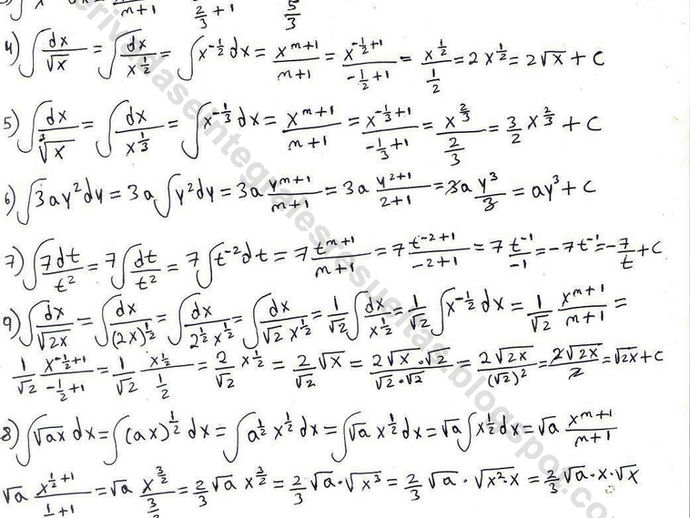 4) ∫ dx/√x = ∫ dx/x^(1/2) = ∫ x^(-1/2) dx = x^(m+1)/(m+1) = x^(-1/2+1)/(-1/2+1) = x^(1/2)/(1/2) = 2x^(1/2) = 2√x + C
5) ∫ dx/∛x = ∫ dx/x^(1/3) = ∫ x^(-1/3) dx = x^(m+1)/(m+1) = x^(-1/3+1)/(-1/3+1) = x^(2/3)/(2/3) = 3/2 x^(2/3) + C
6) ∫ 3ay² dy = 3a ∫ y² dy = 3a y^(m+1)/(m+1) = 3a y^(2+1)/(2+1) = 3a y³/3 = ay³ + C
7) ∫ 7dt/t² = 7 ∫ dt/t² = 7 ∫ t^(-2) dt = 7 t^(m+1)/(m+1) = 7 t^(-2+1)/(-2+1) = 7 t^(-1)/(-1) = -7t^(-1) = -7/t + C
9) ∫ dx/√(2x) = ∫ dx/(2x)^(1/2) = ∫ dx/(2^(1/2) x^(1/2)) = ∫ dx/(√2 x^(1/2)) = 1/√2 ∫ dx/x^(1/2) = 1/√2 ∫ x^(-1/2) dx = 1/√2 x^(m+1)/(m+1) =
1/√2 x^(-1/2+1)/(-1/2+1) = 1/√2 x^(1/2)/(1/2) = 2/√2 x^(1/2) = 2/√2 √x = 2√x·√2/(√2·√2) = 2√(2x)/(√2)² = 2√(2x)/2 = √2x + C
8) ∫ √(ax) dx = ∫ (ax)^(1/2) dx = ∫ a^(1/2) x^(1/2) dx = ∫ √a x^(1/2) dx = √a ∫ x^(1/2) dx = √a x^(m+1)/(m+1)
√a x^(1/2+1)/(1/2+1) = √a x^(3/2)/(3/2) = 2/3 √a x^(3/2) = 2/3 √a·√(x³) = 2/3 √a·√(x²·x) = 2/3 √a·x·√x